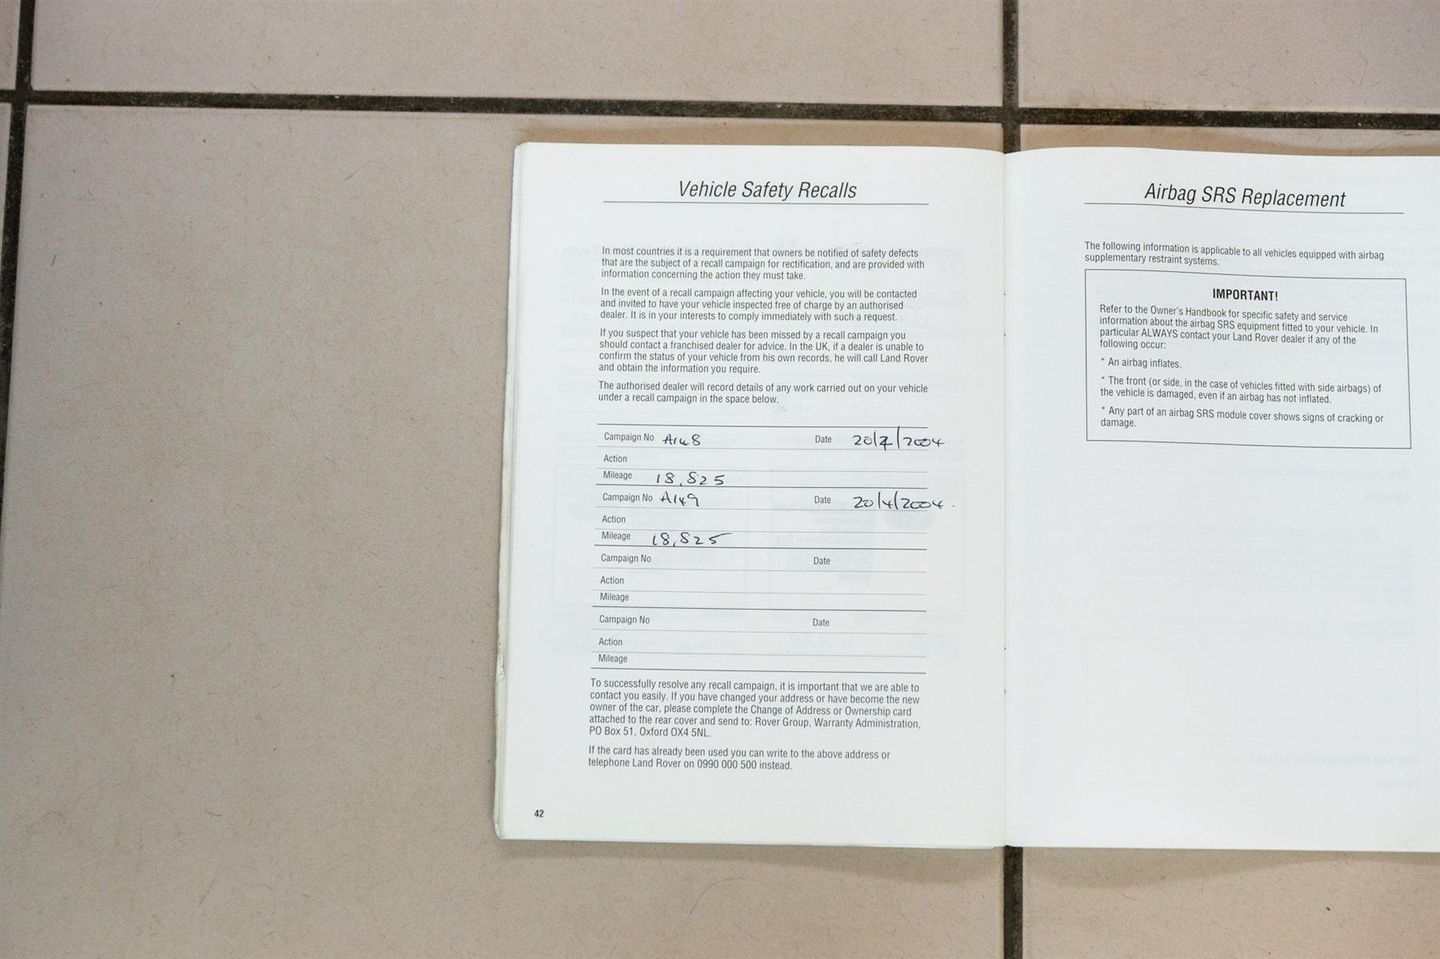 Vehicle Safety Recalls
In most countries it is a requirement that owners be notified of safety defects
that are the subject of a recall campaign for rectification, and are provided with
information concerning the action they must take.
In the event of a recall campaign affecting your vehicle, you will be contacted
and invited to have your vehicle inspected free of charge by an authorised
dealer. It is in your interests to comply immediately with such a request.
If you suspect that your vehicle has been missed by a recall campaign you
should contact a franchised dealer for advice. In the UK, if a dealer is unable to
confirm the status of your vehicle from his own records, he will call Land Rover
and obtain the information you require.
The authorised dealer will record details of any work carried out on your vehicle
under a recall campaign in the space below.
Campaign No A148 Date 20/4/2004
Action
Mileage 18,825
Campaign No A149 Date 20/4/2004.
Action
Mileage 18,825
Campaign No Date
Action
Mileage
Campaign No Date
Action
Mileage
To successfully resolve any recall campaign, it is important that we are able to
contact you easily. If you have changed your address or have become the new
owner of the car, please complete the Change of Address or Ownership card
attached to the rear cover and send to: Rover Group, Warranty Administration,
PO Box 51, Oxford OX4 5NL.
If the card has already been used you can write to the above address or
telephone Land Rover on 0990 000 500 instead.
42
Airbag SRS Replacement
The following information is applicable to all vehicles equipped with airbag
supplementary restraint systems.
IMPORTANT!
Refer to the Owner's Handbook for specific safety and service
information about the airbag SRS equipment fitted to your vehicle. In
particular ALWAYS contact your Land Rover dealer if any of the
following occur:
* An airbag inflates.
* The front (or side, in the case of vehicles fitted with side airbags) of
the vehicle is damaged, even if an airbag has not inflated.
* Any part of an airbag SRS module cover shows signs of cracking or
damage.